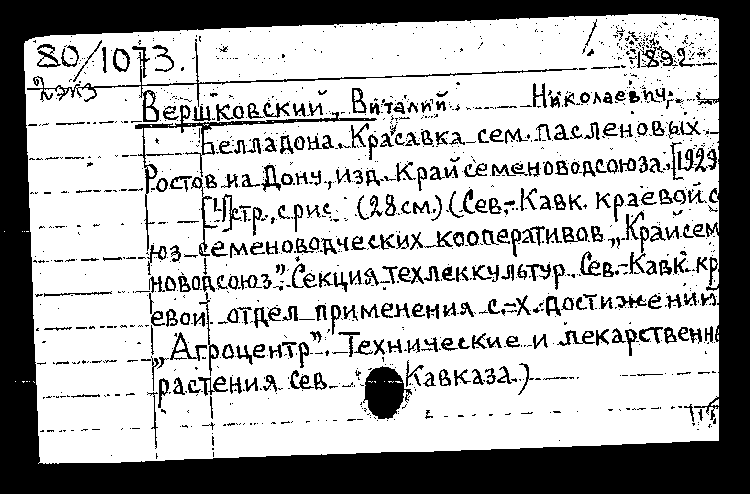 80/1073.
1892
2 экз
Вершковский, Виталий Николаевич.
Белладона. Красавка сем. пасленовых
Ростов на Дону, изд. Крайсеменоводсоюза. [1929
[4] стр., с рис. (28 см.) (Сев.-Кавк. краевой с
юз семеноводческих кооперативов „Крайсем
новодсоюз". Секция техлеккультур. Сев.-Кавк. кр
евой отдел применения с.-х. достижений
„Агроцентр". Технические и лекарственн
растения Сев. Кавказа.)